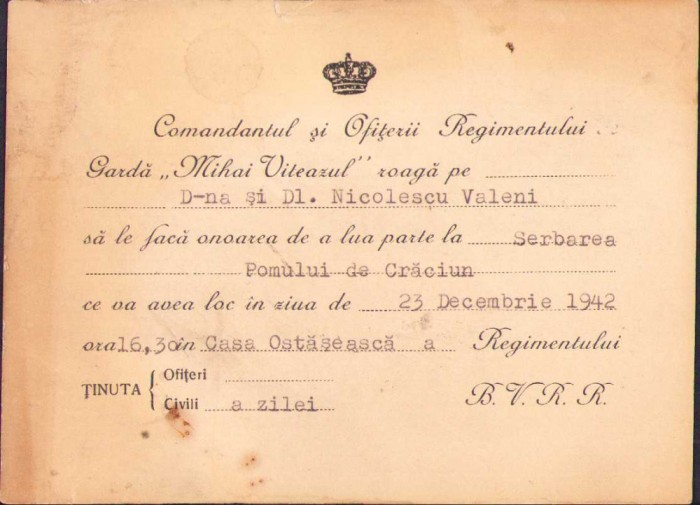 Comandantul și Ofițerii Regimentului
Gardă „Mihai Viteazul” roagă pe
D-na și Dl. Nicolescu Valeni
să le facă onoarea de a lua parte la Serbarea
Pomului de Crăciun
ce va avea loc în ziua de 23 Decembrie 1942
ora 16,30 in Casa Ostăsească a Regimentului
ȚINUTA { Ofițeri
Civili a zilei
B. V. R. R.